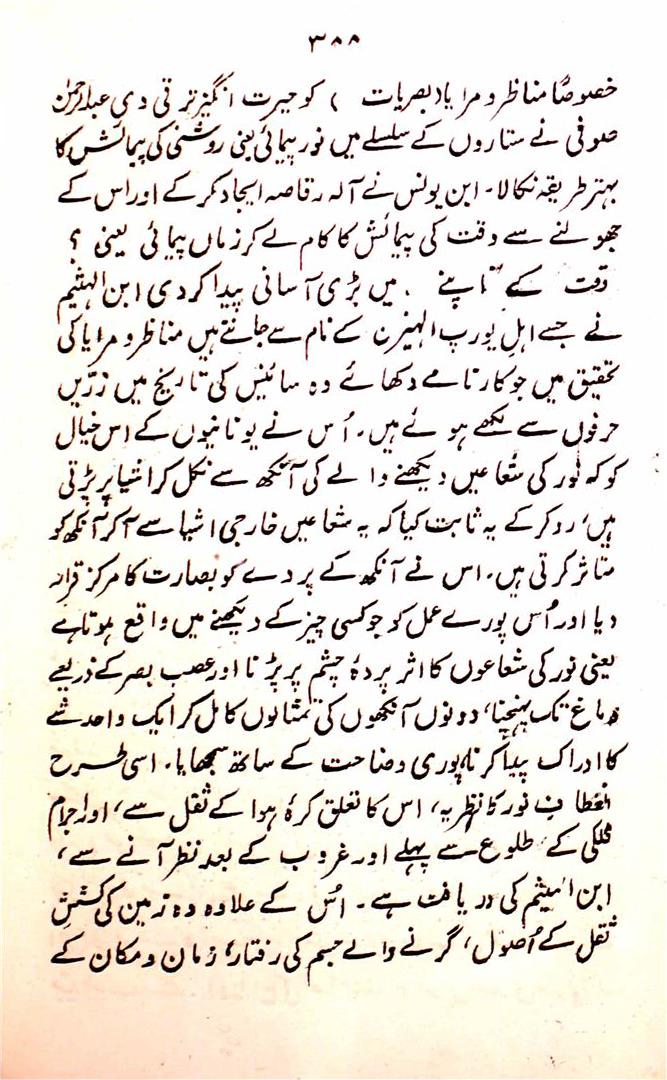 ۳۸۸
خصوصاً مناظر و مرایا (بصریات) کو حیرت انگیز ترقی دی عبدالرحمٰن
صوفی نے ستاروں کے سلسلے میں نور پیمائی یعنی روشنی کی پیمائش کا
بہتر طریقہ نکالا۔ ابن یونس نے آلہ رقاصہ ایجاد کر کے اور اس کے
جھولنے سے وقت کی پیمائش کا کام لے کر زماں پیمائی یعنی ؟
وقت کے ناپنے میں بڑی آسانی پیدا کر دی ابن الہیثم
نے جسے اہل یورپ الہیزن کے نام سے جانتے ہیں مناظر و مرایا کی
تحقیق میں جو کارنامے دکھائے وہ سائنس کی تاریخ میں زرّیں
حرفوں سے لکھے ہوئے ہیں۔ اُس نے یونانیوں کے اس خیال
کو کہ نور کی شعاعیں دیکھنے والے کی آنکھ سے نکل کر اشیا پر پڑتی
ہیں، رد کر کے یہ ثابت کیا کہ یہ شعاعیں خارجی اشیا سے آ کر آنکھ کو
متاثر کرتی ہیں۔ اس نے آنکھ کے پردے کو بصارت کا مرکز قرار
دیا اور اُس پورے عمل کو جو کسی چیز کے دیکھنے میں واقع ہوتا ہے
یعنی نور کی شعاعوں کا اثر پردۂ چشم پر پڑنا اور عصب بصر کے ذریعے
دماغ تک پہنچنا، دونوں آنکھوں کی تمثالوں کا مل کر ایک واحد شے
کا ادراک پیدا کرنا، پوری وضاحت کے ساتھ سمجھایا۔ اسی طرح
انعطاف نور کا نظریہ، اس کا تعلق کرۂ ہوا کے ثقل سے، اور اجرام
فلکی کے طلوع سے پہلے اور غروب کے بعد نظر آنے سے،
ابن الہیثم کی دریافت ہے۔ اُس کے علاوہ وہ زمین کی کشش
ثقل کے اُصول، گرنے والے جسم کی رفتار، زمان و مکان کے